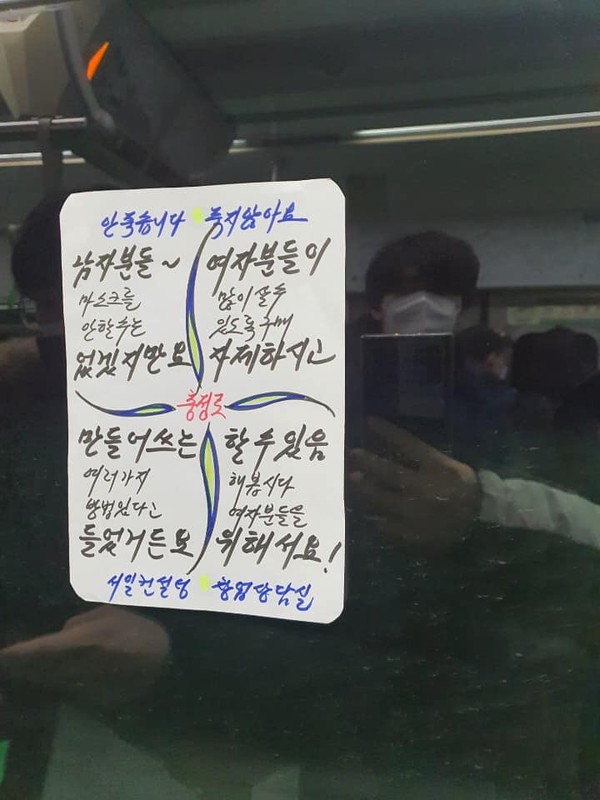 안죽습니다 죽지않아요
남자분들~
마스크를
안할수는
없겠지만요
여자분들이
많이살수
있도록구매
자제하시고
충정로
만들어쓰는
여러가지
방법있다고
들었거든요
할수있음
해봅시다
여자분들을
위해서요!
서일컨설팅 창업상담실